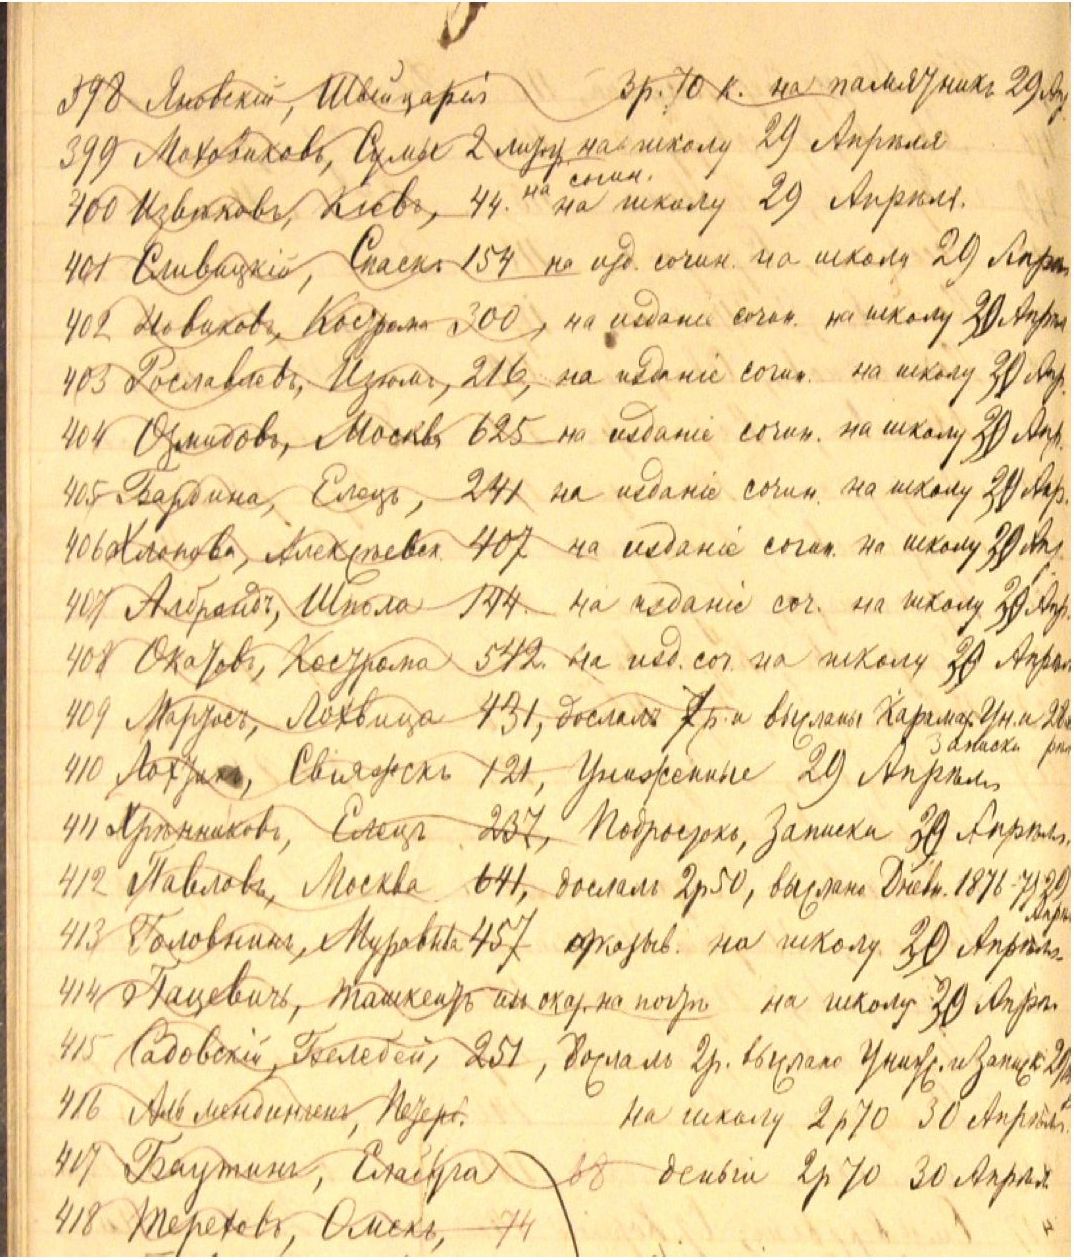 398 Яновскій, Швейцарія 3р. 70 к. на памятникъ 29 Ап
399 Моховиковъ, Сумы 2 на школу 29 Апрѣля
на сочин.
400 Извѣковъ, Кіевъ, 44. на школу 29 Апрѣля.
401 Сливицкій, Спаскъ 154 на изд. сочин. на школу 29 Апрѣл
402 Новиковъ, Кострома 300, на изданіе сочин. на школу 29 Апрѣл
403 Рославлевъ, Изюмъ, 216, на изданіе сочин. на школу 29 Апр.
404 Озмидовъ, Москва 625 на изданіе сочин. на школу 29 Апр.
405 Бардина, Елецъ, 241 на изданіе сочин. на школу 29 Апр.
406 Хлопова, 407 на изданіе сочин. на школу 29 Апр.
407 Албрандъ, Шпола 144. на изданіе соч. на школу 29 Апр.
408 Окатовъ, Кострома 542. на изд. соч. на школу 29 Апрѣл
409 Мартосъ, Лохвица 431, дослалъ р. и высланы Карамаз. Ун. и
Записки
410 Свіяжскъ 121, Униженные 29 Апрѣля
411 Хрѣнниковъ, Елецъ 237, Подростокъ, Записки 29 Апрѣля.
412 Павловъ, Москва 641, дослалъ 2р50, выслано Дневн. 1876-77 29
Апрѣ
413 Головнинъ, 457 отказыв. на школу. 29 Апрѣля.
414 Пацевичъ, Ташкентъ на школу 29 Апрѣ
415 Садовскій, Белебей, 251, дослалъ 2р. выслано и Записк. 29
416 Альмендингенъ, Петерб. на школу 2р70 30 Апрѣля.
417 Баутинъ, Елабуга 68 деньги 2р70 30 Апрѣля
418 Тереховъ, Омскъ, 74